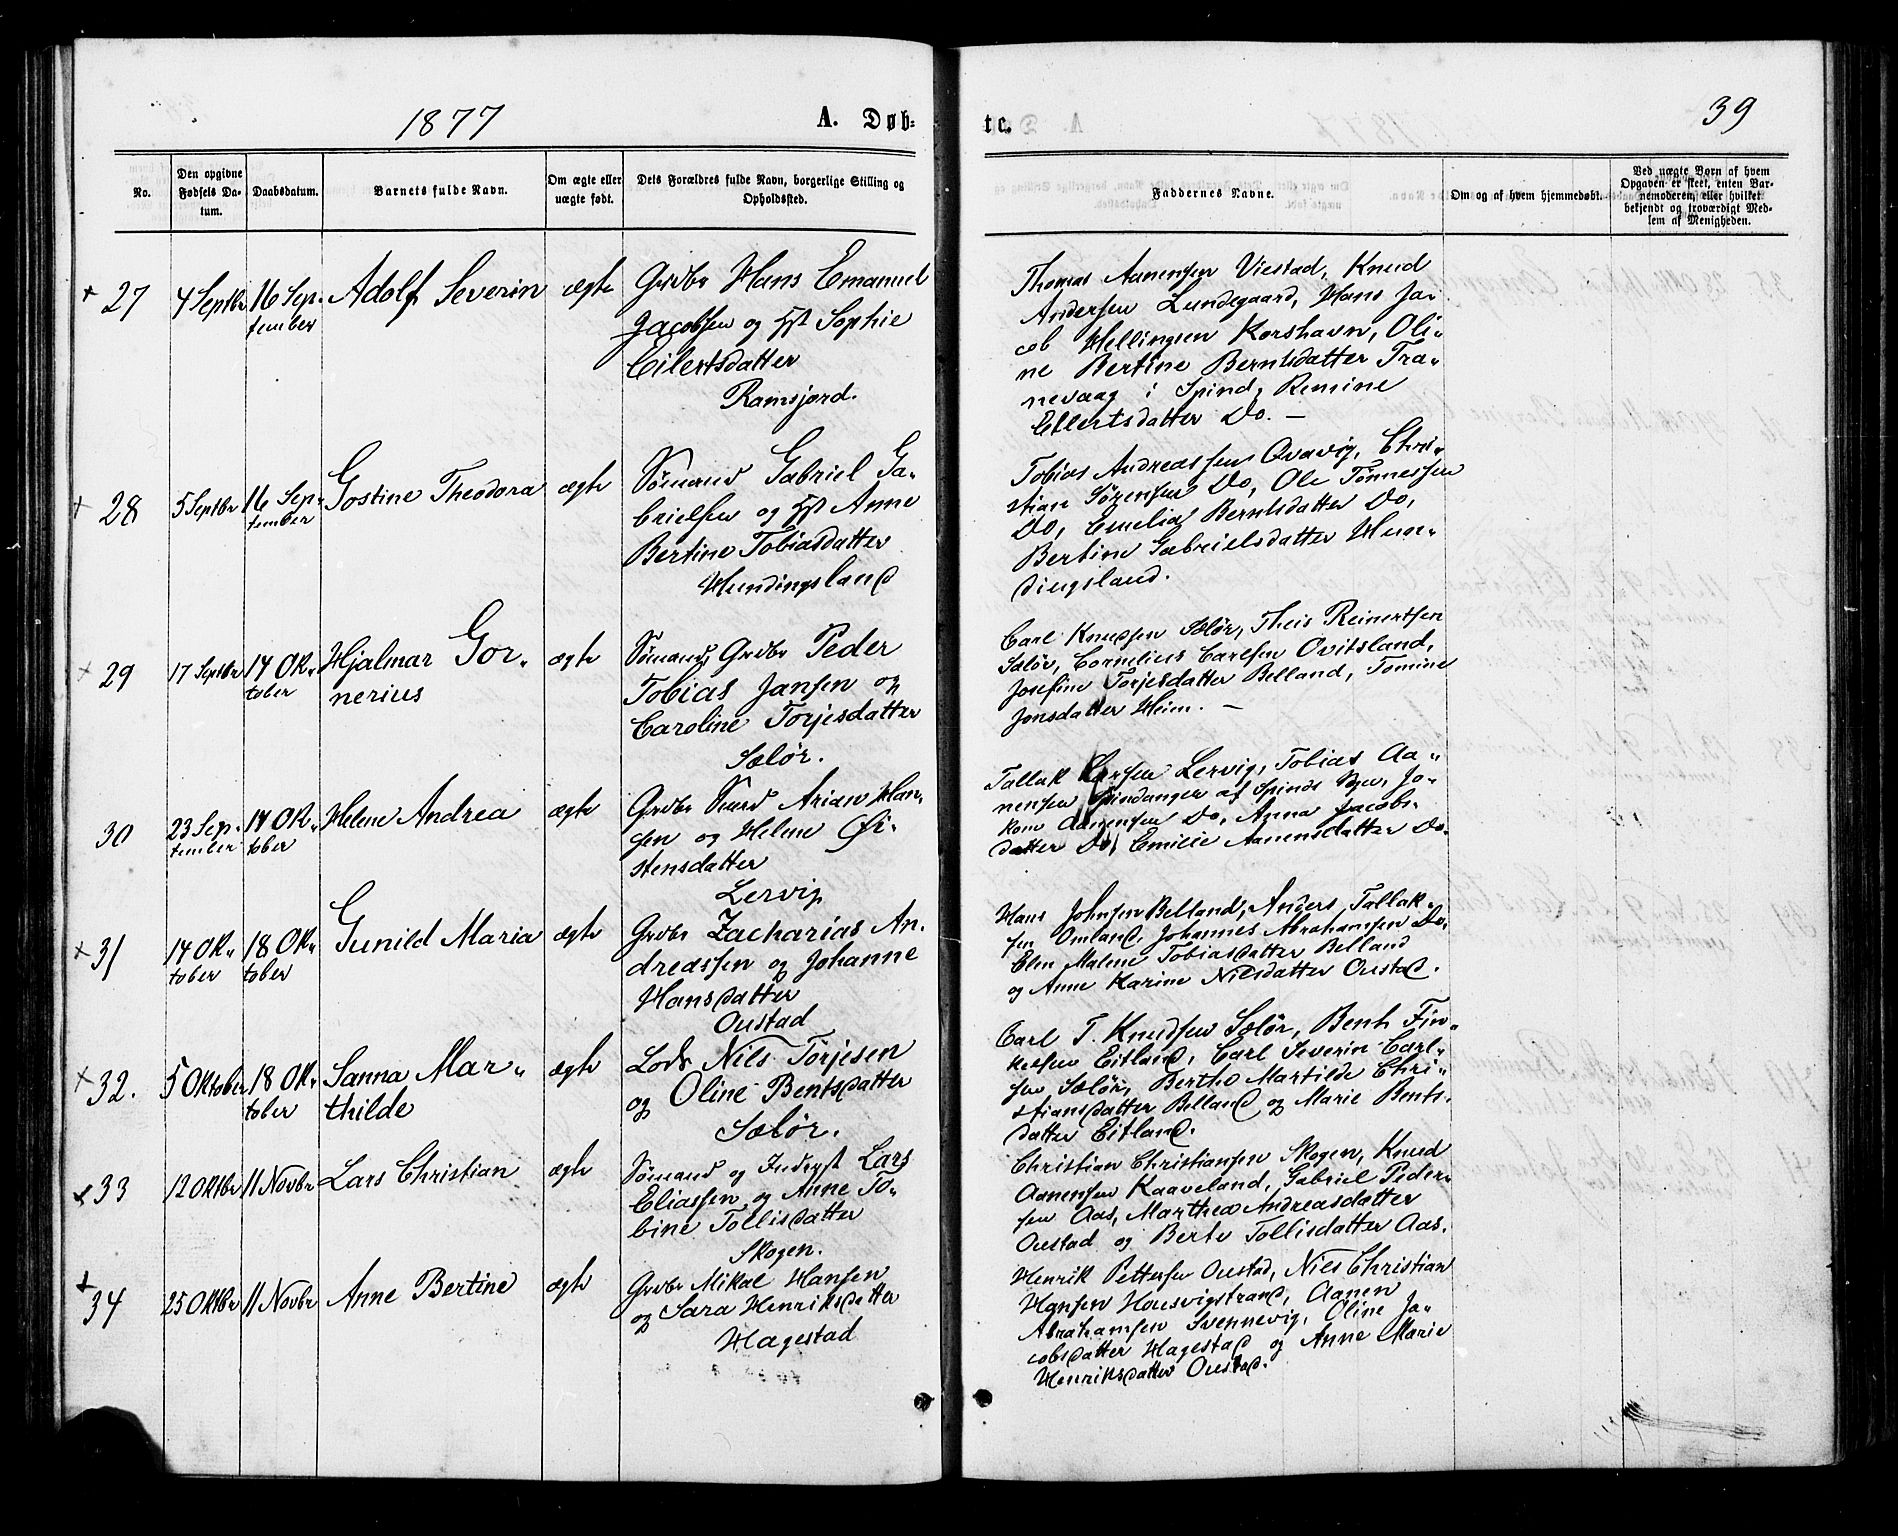 1877
A. Døb-
No.
Den opgivne Fødsels Da-
tum.
Daabsdatum.
Barnets fulde Navn.
Om ægte eller
uægte født.
Dets Forældres fulde Navn, borgerlige Stilling og
Opholdssted.
27
4 Septbr
16 Sep-
tember
Adolf Severin
ægte
Grdbr Hans Emanuel
Jacobsen og Hst Sophie
Eilertsdatter
Ramsjord.
28
5 Septbr
16 Sep-
tember
Gostine Theodora
ægte
Sømand Gabriel Ga-
brielsen og Hst Anne
Bertine Tobiasdatter
Hundingsland
29
17 Septbr
14 Ok-
tober
Hjalmar Gor-
nerius
ægte
Sømand, Grdbr Peder
Tobias Jansen og
Caroline Torjesdatter
Sælør.
30
23 Sep-
tember
14 Ok-
tober
Helene Andrea
ægte
Grdbr Arian Han-
sen og Helene Øi-
stensdatter
Lervig
31
14 Ok-
tober
18 Ok-
tober
Gunild Maria
ægte
Grdbr Zacharias An-
dreassen og Johanne
Hansdatter
Oustad
32.
5 Oktober
18 Ok-
tober
Sanna Mar-
thilde
ægte
Lods Nils Torjesen
og Oline Bentsdatter
Sælør.
33
12 Oktbr
11 Novbr
Lars Christian
ægte
Sømand og Inderst Lars
Eliassen og Anne To-
bine Tollisdatter
Skogen.
34
25 Oktbr
11 Novbr
Anne Bertine
ægte
Grdbr Mikal Hansen
og Sara Henriksdatter
Hagestad
te.
39
Faddernes Navne.
Om og af hvem hjemmedøbt.
Ved uægte Børn af hvem
Opgaven er skeet, enten Bar-
nemoderen, eller hvilket
bekjendt og troværdigt Med-
lem af Menigheden.
Thomas Aanensen Viestad, Knud
Andersen Lundegaard, Hans Ja-
cob Hellingsen Korshavn, Oli-
ne Bertine Berntsdatter Tra-
nevaag i Spind, Remine
Eilertsdatter Do. -
Tobias Andreassen Qvavig, Chri-
stian Sørensen Do, Ole Tønnessen
Do, Emelia Berntsdatter Do,
Bertine Gabrielsdatter Hun-
dingsland.
Carl Knudsen Sælør, Theis Reinertsen
Sælør, Cornelius Carlsen Ovitsland,
Josefine Torjesdatter Belland, Tomine
Jonsdatter Heim. -
Tallak Larsen Lervig, Tobias Aa-
nensen Spindanger af Spinds Sgn, Jo-
kom Aanensen Do, Anna Jacobs-
datter Do, Emilie Aanensdatter Do.
Hans Johnsen Belland, Anders Tallak-
sen Omland, Johannes Abrahamsen Do,
Elen Malene Tobiasdatter Belland
og Anne Karine Nilsdatter Oustad.
Carl T. Knudsen Sælør, Bent Fin-
kelsen Eitland, Carl Severin Carl-
sen Sælør, Bertha Martilde Chri-
stiansdatter Belland og Marie Bents-
datter Eitland.
Christian Christiansen Skogen, Knud
Aanensen Kaaveland, Gabriel Peder-
sen Aas, Marthea Andreasdatter
Oustad og Berte Tollisdatter Aas.
Henrik Pettersen Oustad, Nils Christian
Hansen Housvigstrand, Aanen
Abrahamsen Svennevig, Oline Ja-
cobsdatter Hagestad og Anne Marie
Henriksdatter Oustad.